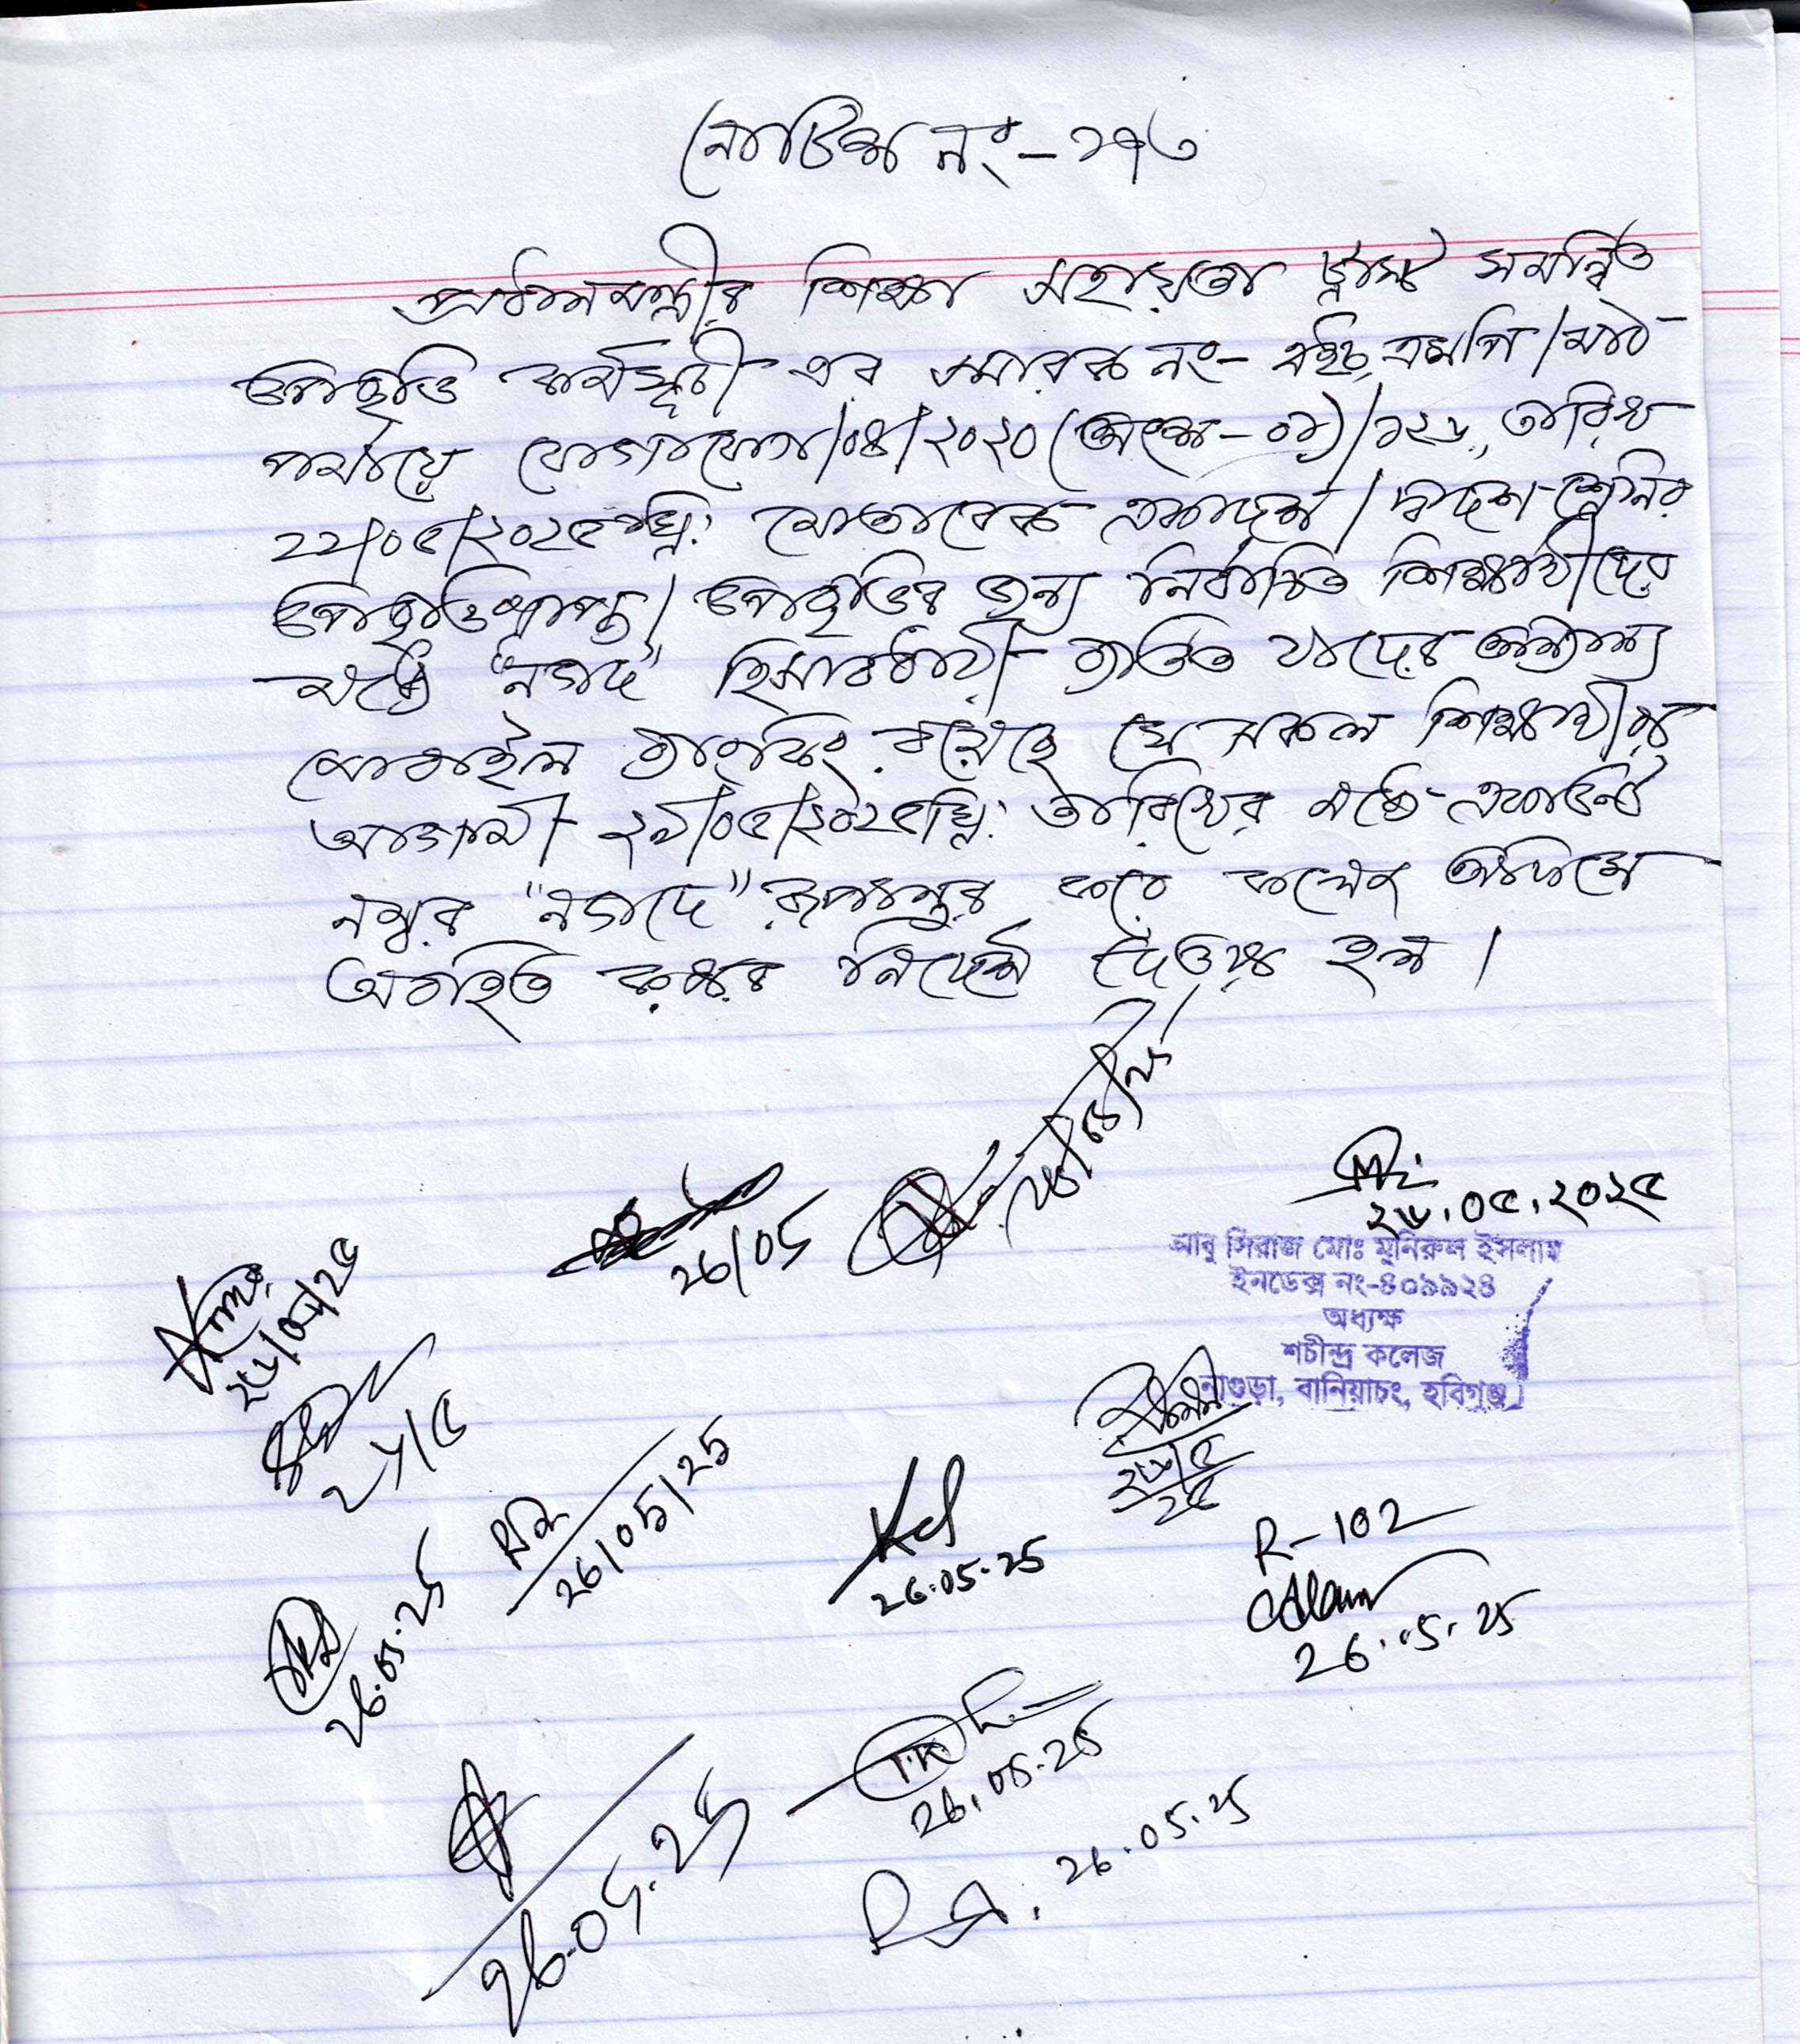 নোটিশ নং- ২৭৩
প্রধানমন্ত্রীর শিক্ষা সহায়তা ট্রাস্ট সমন্বিত
উপবৃত্তি কর্মসূচী এর স্মারক নং- এইচ,এসপি/মাঠ
পর্যায়ে যোগাযোগ/০৪/২০২০(অংশ-০১)/১২৬, তারিখ
২২/০৫/২০২৫খ্রি: মোতাবেক একাদশ/দ্বাদশ শ্রেণির
উপবৃত্তিপ্রাপ্ত/উপবৃত্তির জন্য নির্বাচিত শিক্ষার্থীদের
মধ্যে "নগদ" হিসাবধারী ব্যতিত যাদের অন্যান্য
মোবাইল ব্যাংকিং রয়েছে সে সকল শিক্ষার্থীর
আগামী ২৯/০৫/২০২৫খ্রি: তারিখের মধ্যে একাউন্ট
নম্বর "নগদে" রূপান্তর করে কলেজ অফিসে
অবহিত করার নির্দেশ দেওয়া হল।
২৬/০৫/২৫
26/05
২৬.০৫.২০২৫
আবু সিরাজ মোঃ মুনিরুল ইসলাম
ইনডেক্স নং-৪০৯৯২৪
অধ্যক্ষ
শচীন্দ্র কলেজ
নাগুড়া, বানিয়াচং, হবিগঞ্জ।
২৬/০৫/২৫
২৬/৫
26/05/25
26.05.25
২৬/৫
২৫
R-102
26.05.25
26.5.25
T.K
26.05.25
26.05.25
26.05.25